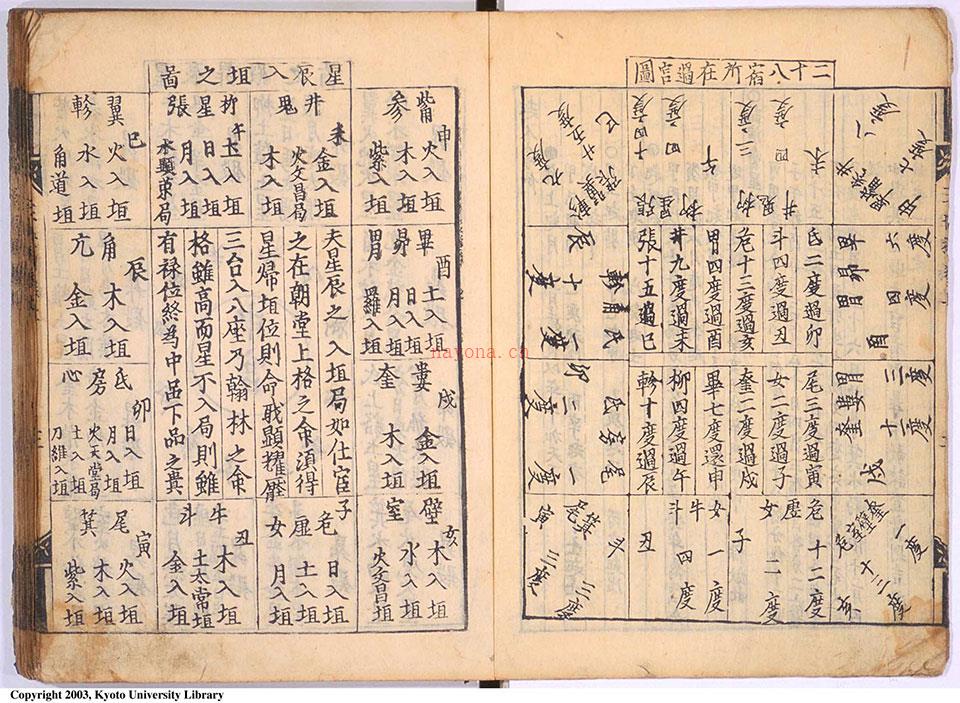 二十八宿所在過宮圖
畢昴胃
六度
四度
酉
胃婁奎
三度
十二度
戌
井鬼
四度
未
柳
三度
午
柳星張
十四度
巳
張翼軫
氐二度過卯
斗四度過丑
危十三度過亥
胃四度過酉
井九度過未
張十五過巳
尾三度過寅
女二度過子
奎二度過戌
畢七度還申
柳四度過午
軫十度過辰
危十二度
虛
女二度
子
女一度
牛四度
斗
丑
辰十度
一度
卯三度
氐房尾
一度
箕
尾
三度
寅
星辰入垣之啚
申
觜火入垣
參木入垣
紫入垣
酉
畢土入垣
昴日入垣
月入垣
胃羅入垣
戌
婁金入垣
奎木入垣
亥
壁木入垣
室水入垣
火文昌垣
未
井金入垣
火文昌局
鬼木入垣
午
柳土入垣
星日入垣
張月入垣
水顕東局
夫星辰之入垣局如仕宦
之在朝堂上格之命須得
星帰垣位則命戝顕耀壁
三台入八座乃翰林之命
格雖高而星不入局則雖
有禄位終為中品下品之貴
子
危日入垣
虛土入垣
女月入垣
丑
牛木入垣
土太常垣
斗金入垣
巳
翼火入垣
軫水入垣
角道垣
辰
角木入垣
亢金入垣
卯
氐日入垣
房月入垣
火天堂局
心土入垣
刀維入垣
寅
尾火入垣
木入垣
箕紫入垣
nayona.cn
Copyright 2003, Kyoto University Library